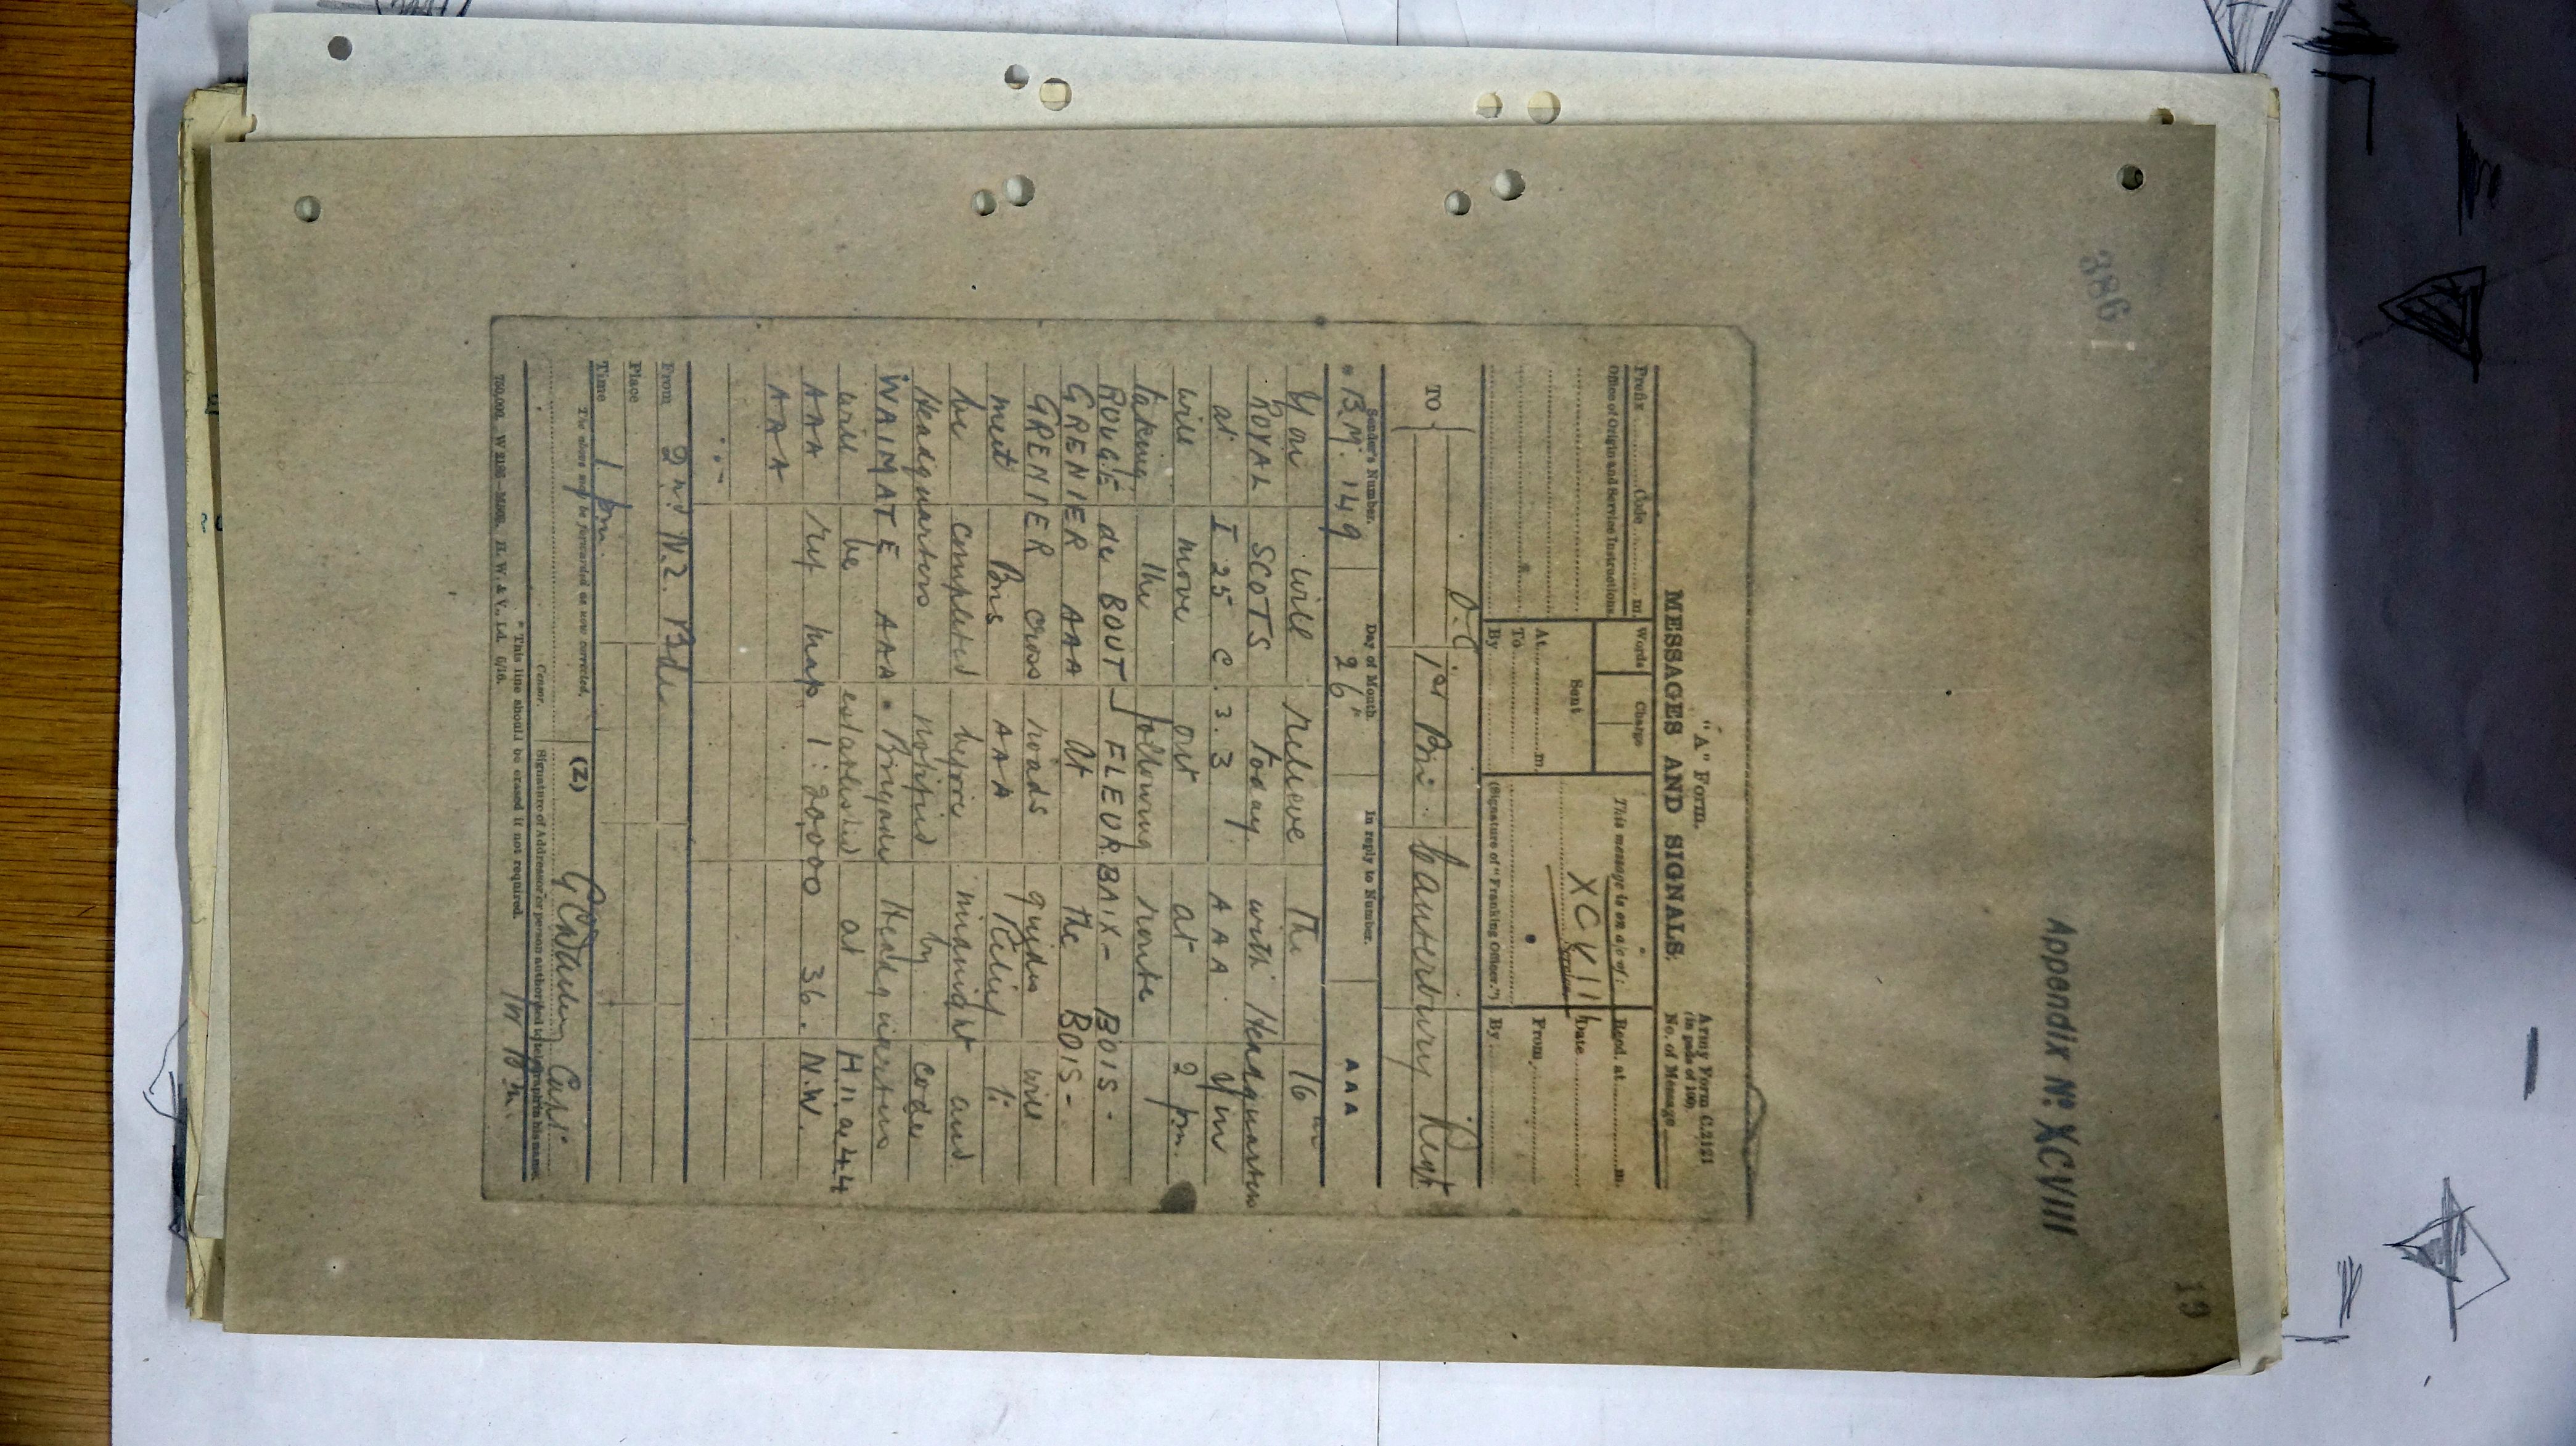 3861
Appendix Nº XCVIII
19
"A" Form.
Army Form C.2121
(in pads of 100).
MESSAGES AND SIGNALS.
No. of Message
Prefix Code m.
Words
Charge
This message is on a/c of:
Recd. at m.
Office of Origin and Service Instructions.
XCVIII
Service
Date
Sent
At m.
From
To
By
(Signature of "Franking Officer.")
By
TO
O.C. 1st Bn. Canterbury Regt
Sender's Number.
Day of Month.
In reply to Number.
AAA
* B.M. 149
26th
You will relieve the 16th
ROYAL SCOTS today with Headquarters
at I 25 c. 3.3 AAA You
will move out at 2 pm.
taking the following route
ROUGE de BOUT - FLEURBAIX - BOIS -
GRENIER AAA At the BOIS -
GRENIER cross roads guides will
meet Bns AAA Relief to
be completed before midnight and
Headquarters notified by code
WAIMATE AAA - Brigade Headquarters
will be established at H 11 a 4.4
AAA ref map 1: 20,000 36. N.W.
AAA
From 2nd N.Z. Bde
Place
Time 1 pm.
The above may be forwarded as now corrected.
(Z)
Capt
Censor.
Signature of Addressor or person authorised to telegraph in his name.
* This line should be erased if not required.
750,000. W 2186—M509. H. W. & V., Ld. 6/16.